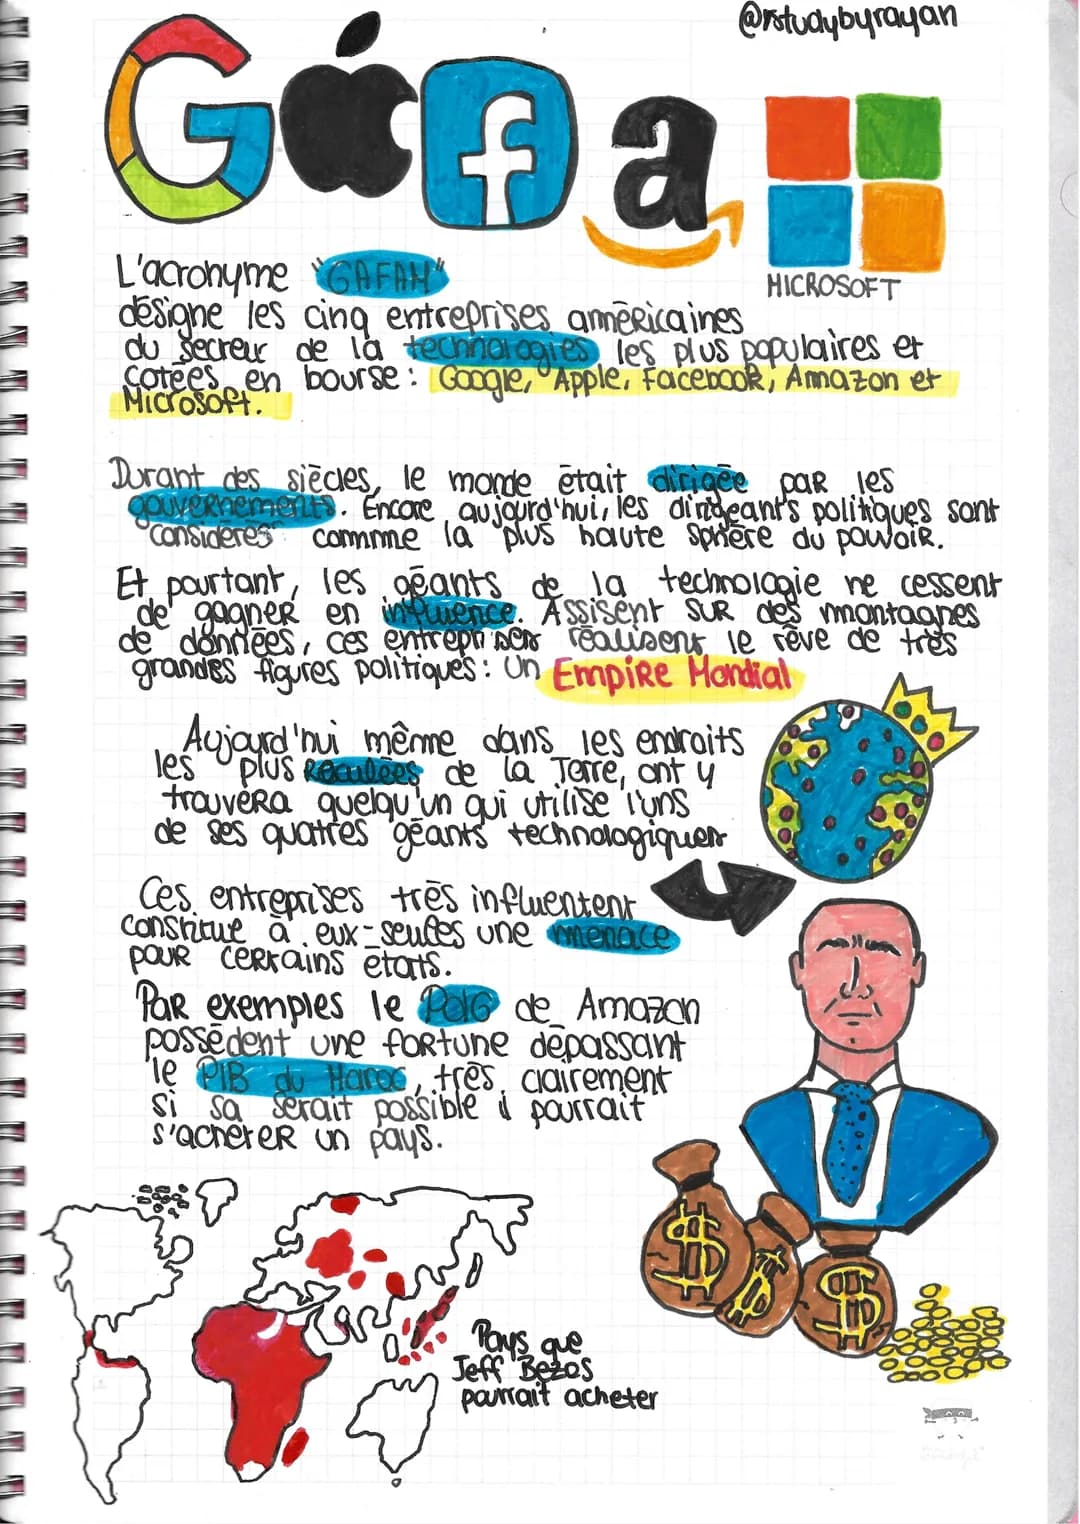 @rstudybyrayan
MICROSOFT
L'acronyme "GAFAM"
désigne les cinq entreprises américaines
du secreur de la technologies les plus populaires et
cotées en bourse : Google, Apple, Facebook, Amazon et
Microsoft.
Durant des siècles, le monde était dirigée par les
gouvernements. Encore aujourd'hui, les dirigeants politiques sont
considérés comme la plus haute sphère du pouvoir.
Et pourtant, les géants de la technologie ne cessent
de gagner en influence. Assisent sur des montagnes
de données, ces entreprises réalisent le rêve de très
grandes figures politiques : Un Empire Mondial
Aujourd'hui même dans les endroits
les plus reculées de la Terre, ont y
trouvera quelqu'un qui utilise l'uns
de ses quatres géants technologiques
Ces entreprises très influentent
constitue à eux-seules une menace
pour certains états.
Par exemples le PDG de Amazon
possèdent une fortune dépassant
le PIB du Maroc, très clairement
si sa serait possible il pourrait
s'acheter un pays.
Pays que
Jeff Bezos
pourrait acheter